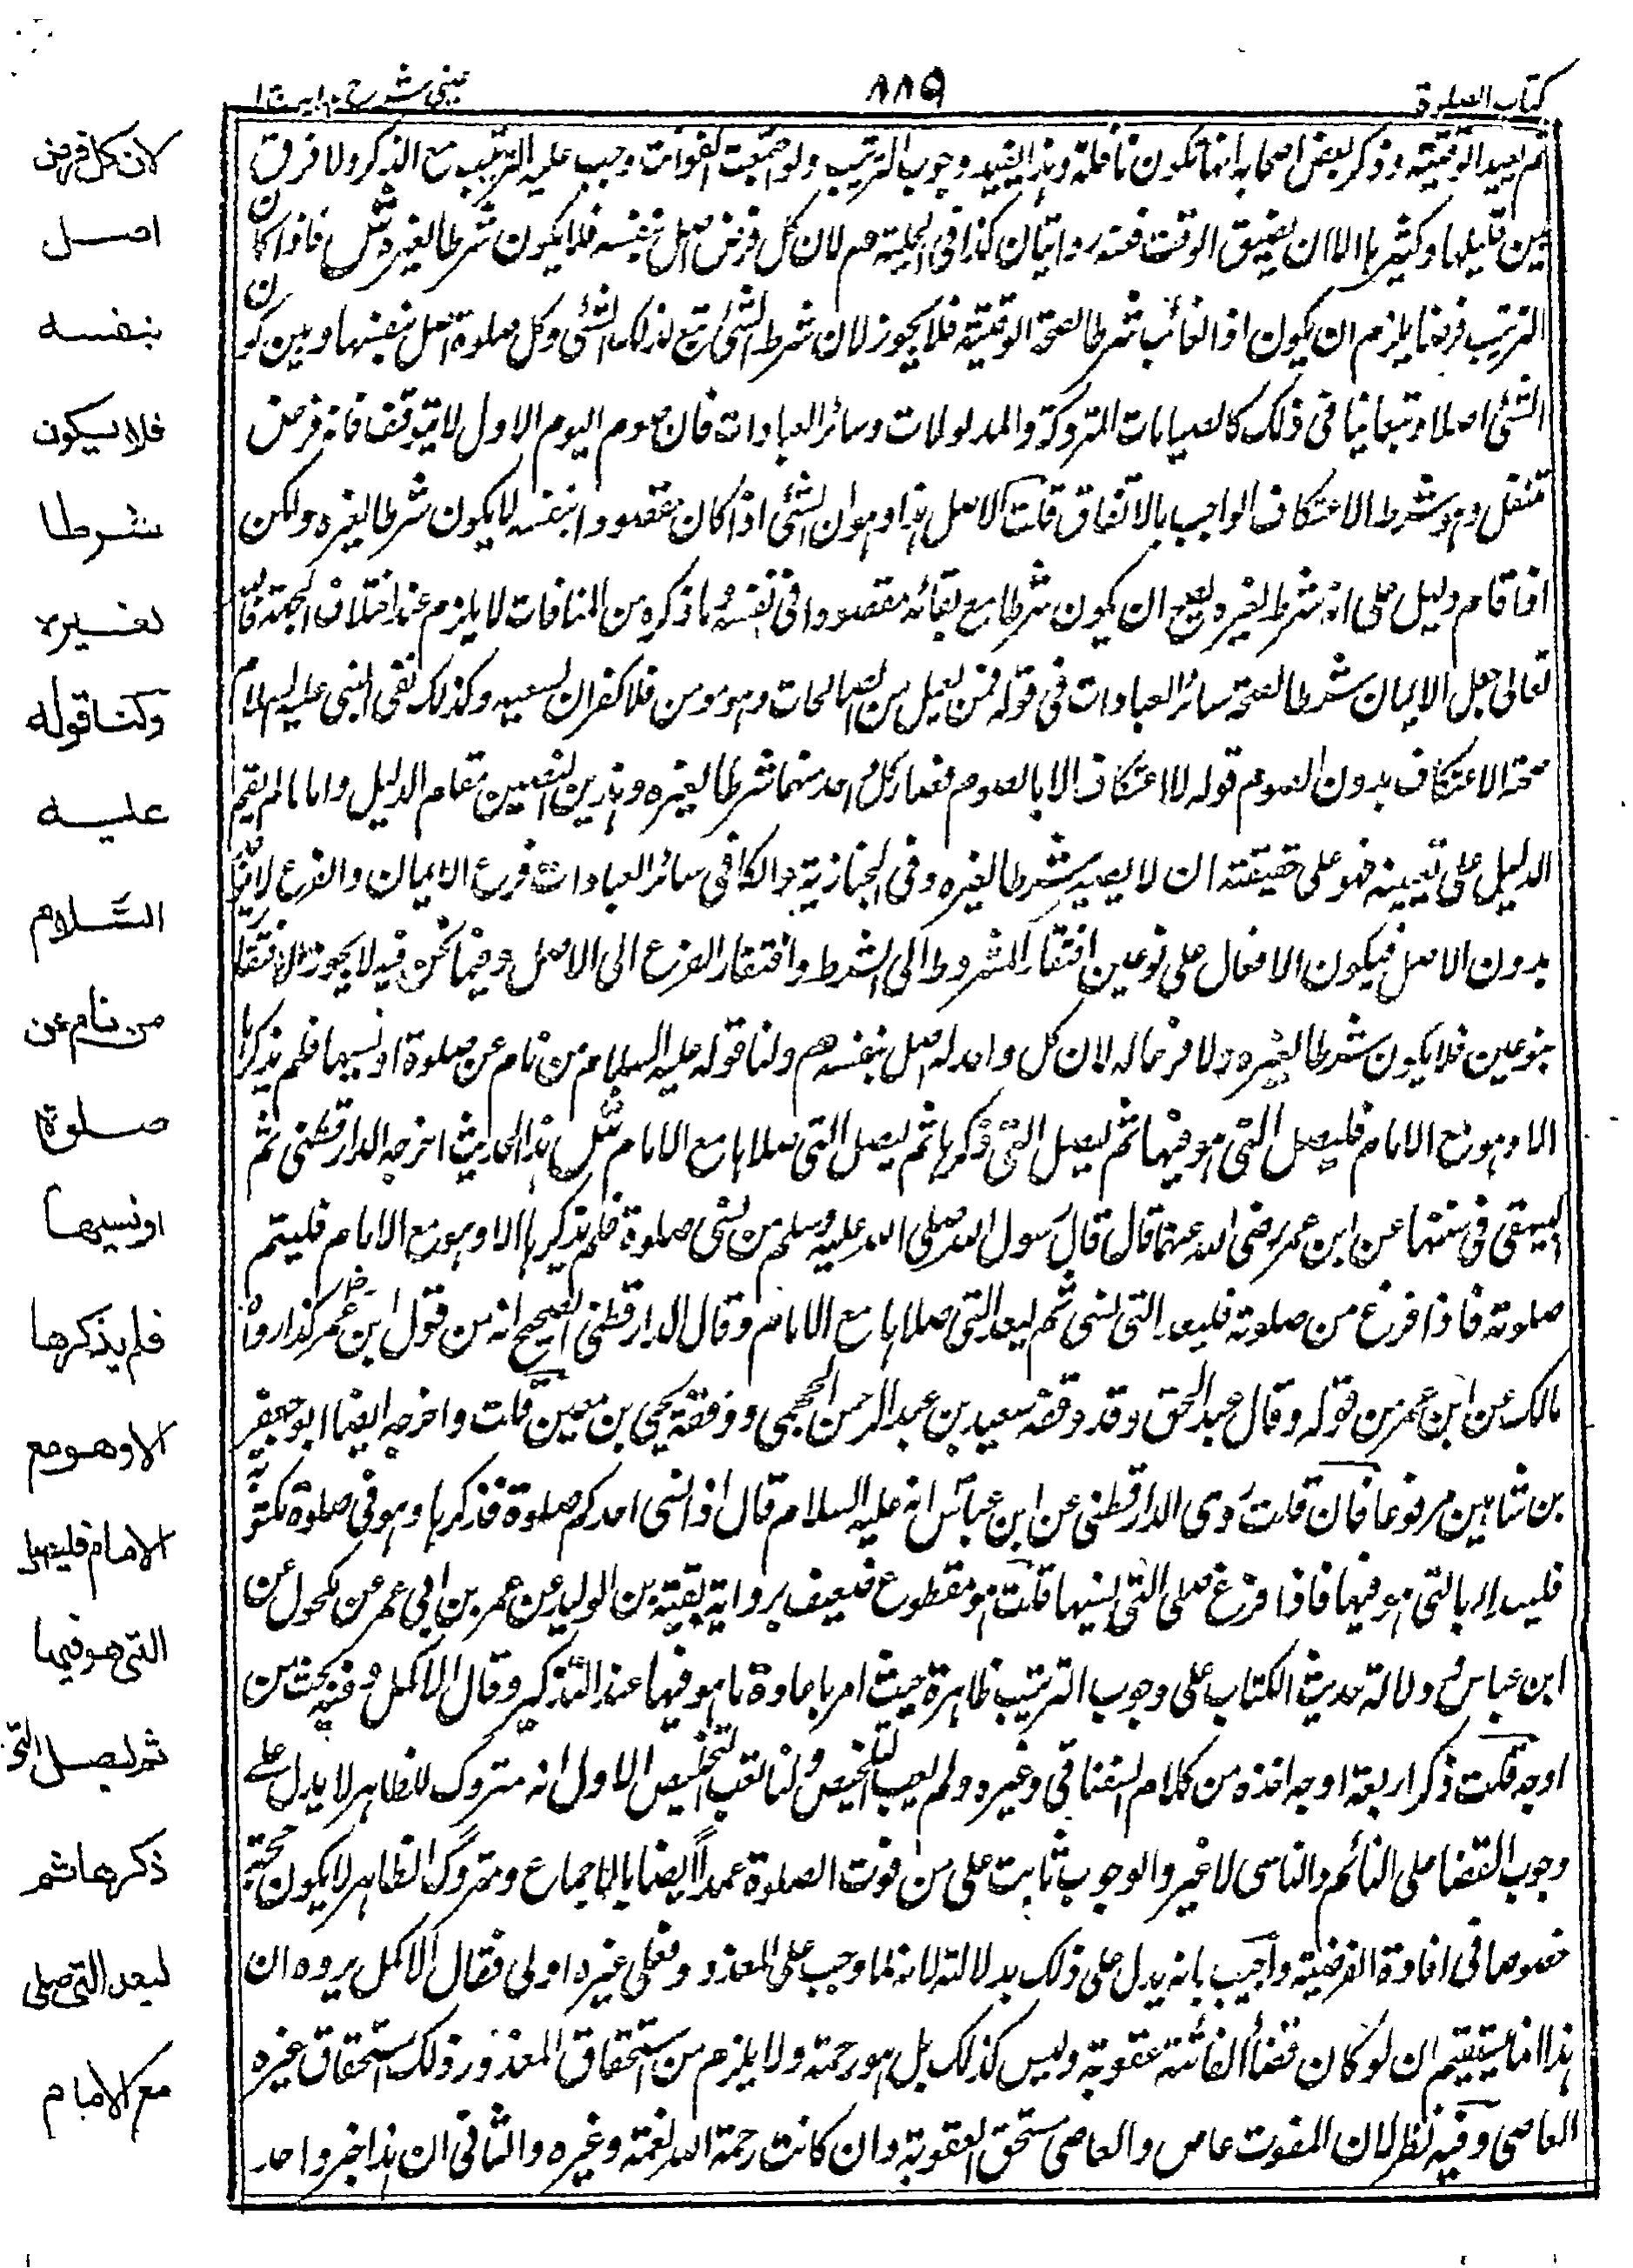 كتاب الصلوة
٨٨٥
عيني شرح هداية ج ١
ثم يعيد الوقتية وذكر بعض اصحابه انها تكون نافلة وهذا يفيد وجوب الترتيب ولو اجتمعت الفوائت وجب عليه الترتيب مع الذكر ولا فرق
بين قليلها وكثيرها الا ان يضيق الوقت فعنه روايتان كذا في الحلية م لان كل فرض اصل بنفسه فلا يكون شرطا لغيره ش فاذا كان
الترتيب فرضا يلزم ان يكون اذ الفائت شرطا لصحة الوقتية فلا يجوز لان شرط الشئ تبع لذلك الشئ وكل صلوة اصل بنفسها وبين كون
الشئ اصلا وتبعا تنافي ذلك كالصيامات المتروكة والمدلولات وسائر العبادات فان صوم اليوم الاول لا يتوقف فانه فرض
مستقل وهو شرط الاعتكاف الواجب بالاتفاق قلت الاصل هذا وهو ان الشئ اذا كان مقصودا بنفسه لا يكون شرطا لغيره ولكن
اذا قام دليل على انه شرط لغيره يصح ان يكون شرطا مع بقائه مقصودا في نفسه وما ذكره من المنافات لا يلزم عند اختلاف الجهة فالله
تعالى جعل الايمان شرطا لصحة سائر العبادات في قوله فمن يعمل من الصالحات وهو مومن فلا كفران لسعيه وكذلك نفى النبي عليه السلام
صحة الاعتكاف بدون الصوم قوله لا اعتكاف الا بالصوم فصار كل واحد منهما شرطا لغيره وهذين النصين مقام الدليل واما ما لم يقم
الدليل على تعيينه فهو على حقيقته ان لا يصير شرطا لغيره وفي الخبازية والكافي سائر العبادات فرع الايمان والفرع لا
بدون الاصل فيكون الافعال على نوعين افتقار المشروط الى الشرط وافتقار الفرع الى الاصل وفيما نحن فيه لا يجوز الافتقار
بنوعين فلا يكون شرطا لغيره ولا فرعا له لان كل واحد له اصل بنفسه هم ولنا قوله عليه السلام من نام عن صلوة او نسيها فلم يذكرها
الا وهو مع الامام فليصل التي هو فيها ثم ليصل التي ذكرها ثم يصل التي صلاها مع الامام ش هذا الحديث اخرجه الدارقطني ثم
البيهقي في سننها عن ابن عمر رضي الله عنهما قال قال رسول الله صلى الله عليه وسلم من نسي صلوة فلم يذكرها الا وهو مع الامام فليتم
صلوته فاذا فرغ من صلوته فليعد التي نسي ثم ليعد التي صلاها مع الامام وقال الدارقطني الصحيح انه من قول ابن عمر كذا رواه
مالك عن ابن عمر من قوله وقال عبد الحق وقد وقفه سعيد بن عبد الرحمن الجمحي ووفقه يحيى بن معين قلت واخرجه ايضا ابو حفص
بن شاهين مرفوعا فان قلت روى الدارقطني عن ابن عباس انه عليه السلام قال اذا نسي احدكم صلوة فذكرها وهو في صلوة مكتوبة
فليبدا بالتي هو فيها فاذا فرغ صلى التي نسيها قلت هو مقطوع ضعيف برواية بقية بن الوليد عن عمر بن ابي عمر عن مكحول عن
ابن عباس ودلالة حديث الكتاب على وجوب الترتيب ظاهرة حيث امر باعادة ما هو فيها عند التذكير وقال الاكمل وفيه بحث من
اوجه قلت ذكر اربعة اوجه اخذه من كلام السغناقي وغيره ولم يصب التلخيص ولنا تعب التلخيص الاول انه متروك الظاهر لا يدل على
وجوب القضا على النائم والناسي لا غير والوجوب ثابت على من فوت الصلوة عمدا ايضا بالاجماع ومتروك الظاهر لا يكون حجة
خصوصا في افادة الفرضية واجيب بانه يدل على ذلك بدلالته لانه لما وجب على المعذور فعلى غيره اولى فقال الاكمل يروه ان
هذا انما يستقيم ان لو كان قضاأ الفائتة عقوبة وليس كذلك بل هو رحمة ولا يلزم من استحقاق المعذور ذلك استحقاق غيره
العاصي وفيه نظر لان المفوت عاص والعاصي مستحق العقوبة وان كانت رحمة الله لغمته وغيره والثاني ان هذا خبر واحد
لان كل فرض
اصل
بنفسه
فلا يكون
شرطا
لغيره
ولنا قوله
عليه
السلام
من نام عن
صلوة
او نسيها
فلم يذكرها
الا وهو مع
الامام فليصل
التي هو فيها
ثم ليصل التي
ذكرها ثم
ليعد التي صلى
مع الامام